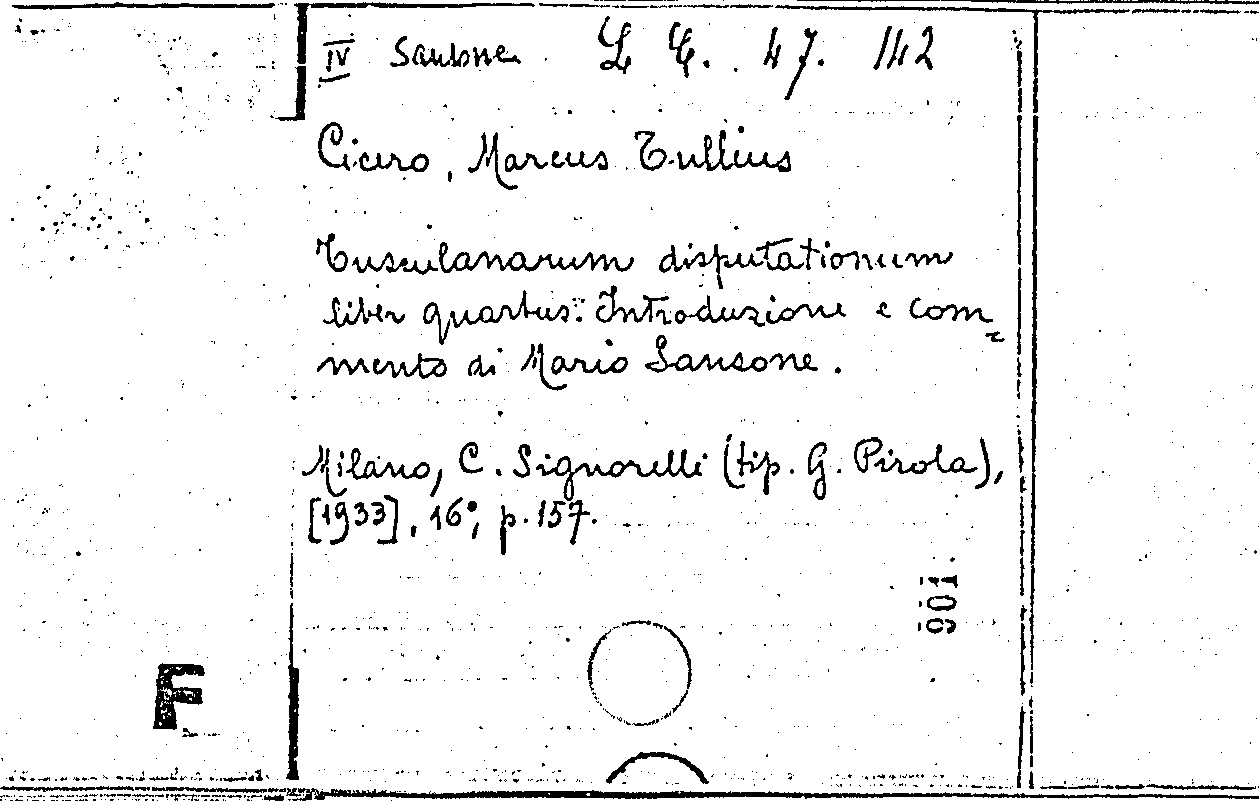 IV Sansone L C. 47. 142
Cicero, Marcus Tullius
Tusculanarum disputationum
liber quartus. Introduzione e com=
mento di Mario Sansone.
Milano, C. Signorelli (tip. G. Pirola),
[1933], 16°, p. 157.
901.
F